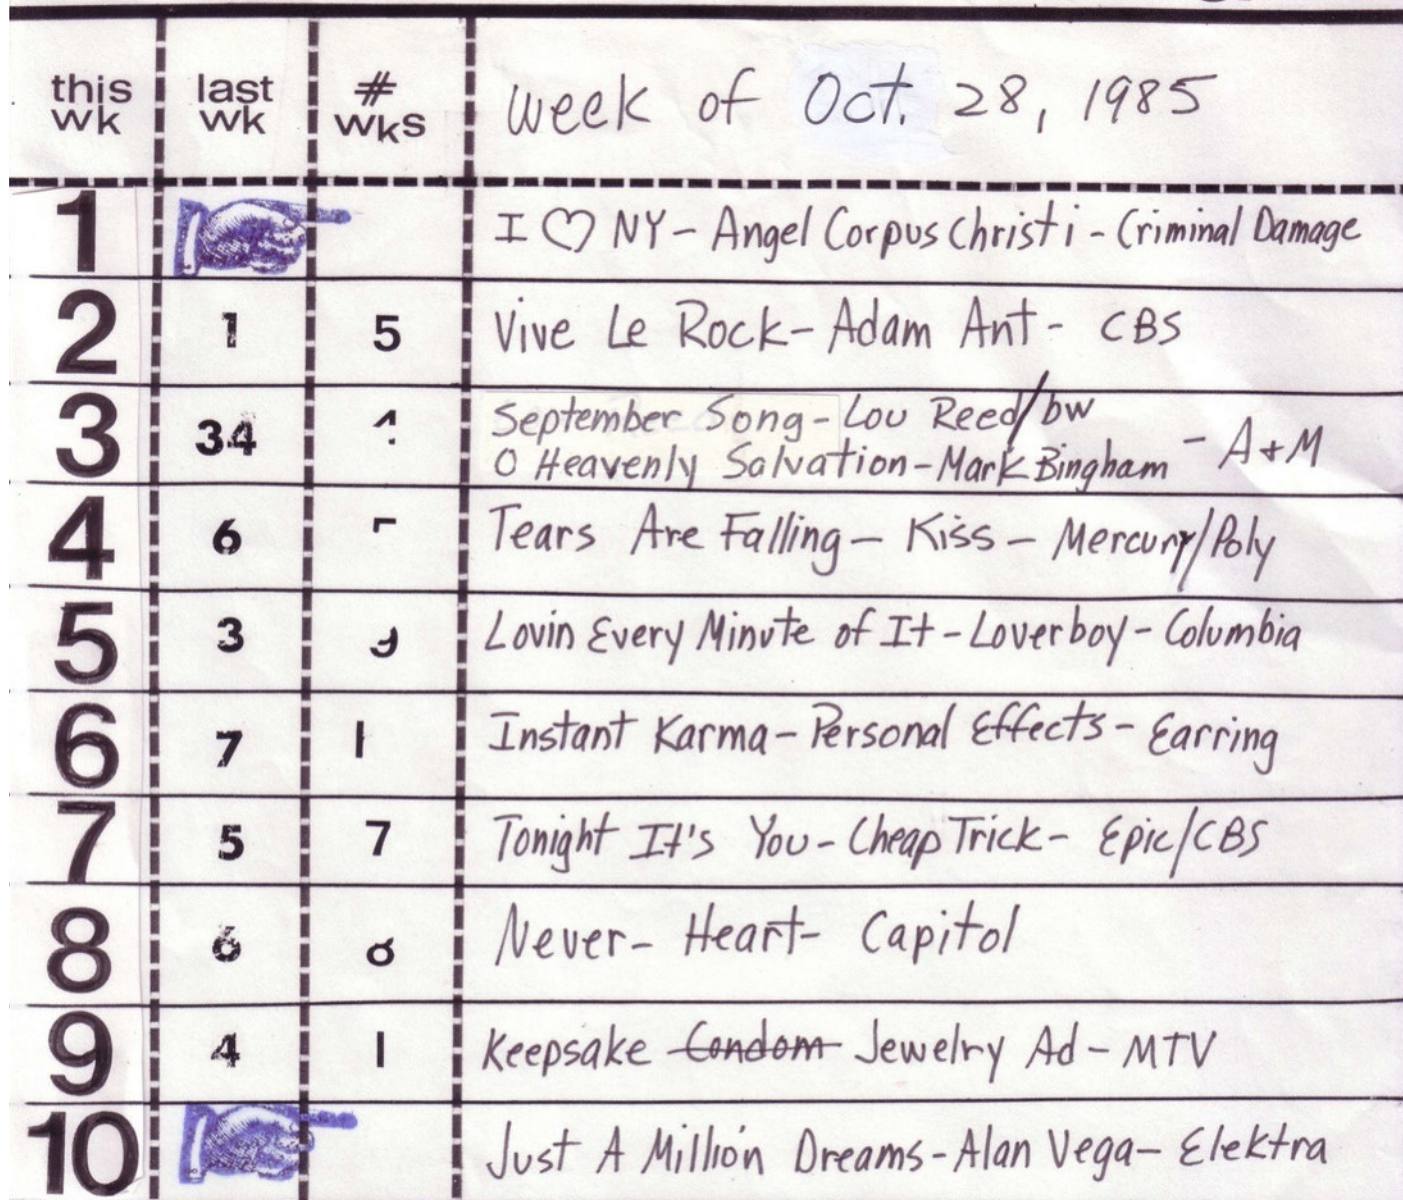 this wk last wk # wks week of Oct. 28, 1985
1 I ♡ NY - Angel Corpus Christi - Criminal Damage
2 1 5 Vive Le Rock - Adam Ant - CBS
3 34 September Song - Lou Reed/bw
O Heavenly Salvation - Mark Bingham - A+M
4 6 Tears Are Falling - Kiss - Mercury/Poly
5 3 Lovin Every Minute of It - Loverboy - Columbia
6 7 Instant Karma - Personal Effects - Earring
7 5 7 Tonight It's You - Cheap Trick - Epic/CBS
8 Never - Heart - Capitol
9 4 Keepsake Condom Jewelry Ad - MTV
10 Just A Million Dreams - Alan Vega - Elektra